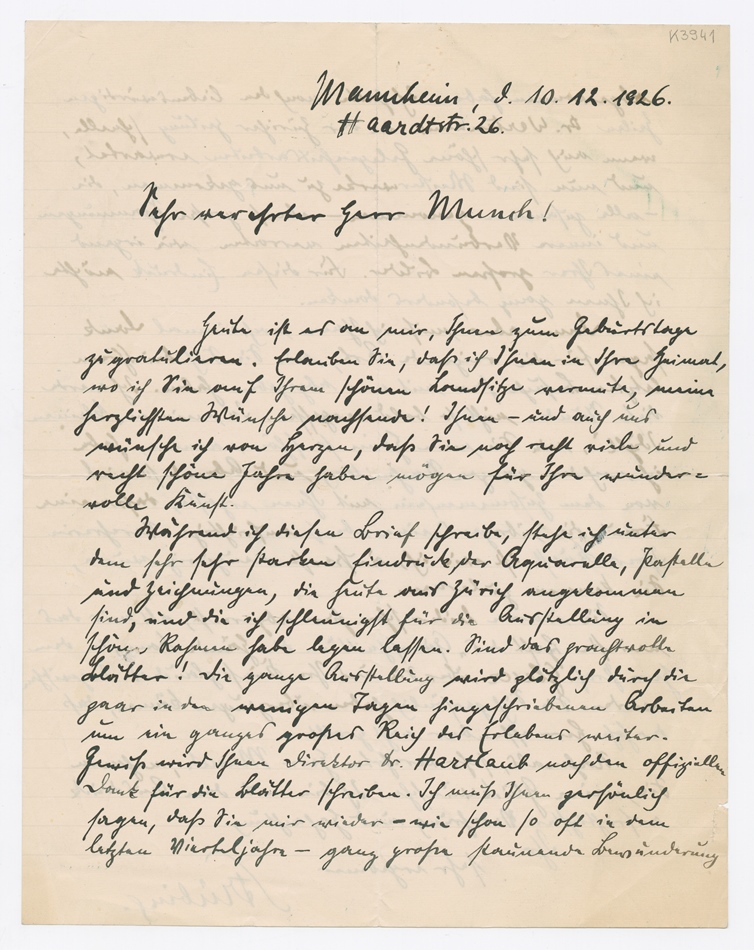 K3941
Mannheim, d. 10.12.1926.
Haardtstr. 26.
Sehr verehrter Herr Munch!
Heute ist es an mir, Ihnen zum Geburtstage
zu gratulieren. Erlauben Sie, daß ich Ihnen in Ihre Heimat,
wo ich Sie auf Ihrem schönen Landsitze vermute, meine
herzlichsten Wünsche nachsende! Ihnen – und auch uns
wünsche ich von Herzen, daß Sie noch recht viele und
recht schöne Jahre haben mögen für Ihre wunder=
volle Kunst.
Während ich diesen Brief schreibe, stehe ich unter
dem sehr sehr starken Eindruck der Aquarelle, Pastelle
und Zeichnungen, die heute aus Zürich angekommen
sind, und die ich schleunigst für die Ausstellung in
schöne Rahmen habe legen lassen. Sind das prachtvolle
Blätter! Die ganze Ausstellung wird plötzlich durch die
paar in den wenigen Tagen hingeschriebenen Arbeiten
um ein ganzes großes Reich des Erlebens weiter.
Gewiß wird Ihnen Direktor Dr. Hartlaub noch den offiziellen
Dank für die Blätter schreiben. Ich muß Ihnen persönlich
sagen, daß Sie mir wieder – wie schon so oft in dem
letzten Vierteljahre – ganz große staunende Bewunderung